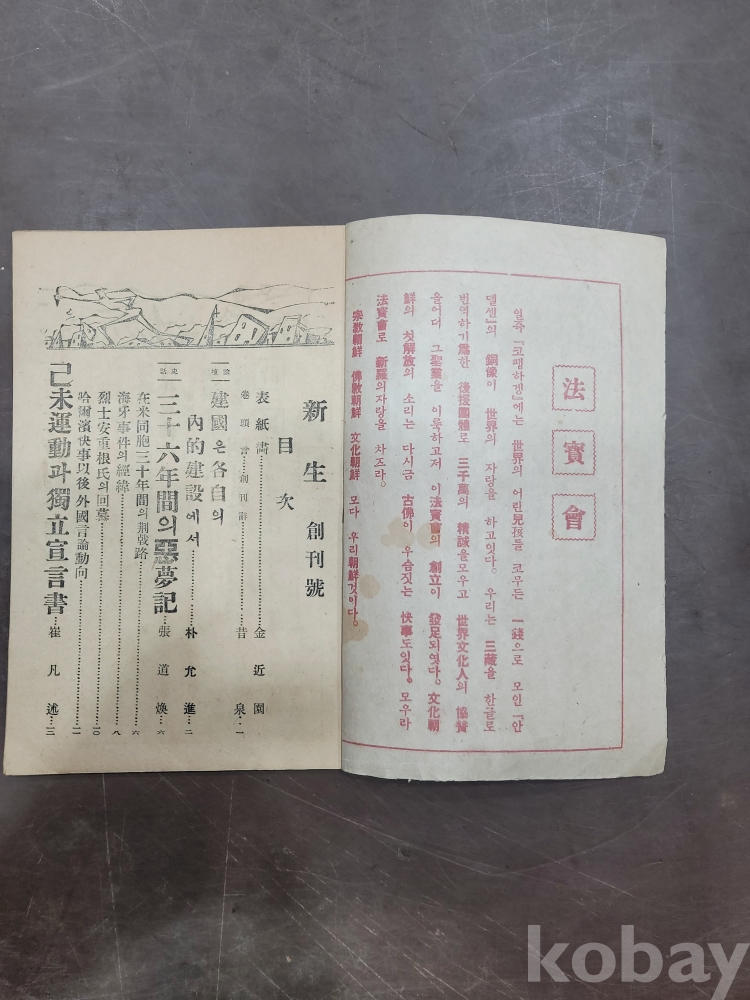 法寶會
일즉 『코펜하겐』에는 世界의 어린兒孩들 코무든 一錢으로 모인 『안
델센』의 銅像이 世界의 자랑을 하고잇다。 우리는 三藏을 한글로
번역하기爲한 後援團體로 三千萬의 精誠을모우고 世界文化人의 協贊
을어더 그聖業을 이룩하고저 이法寶會의 創立이 發足되엿다。 文化朝
鮮의 첫解放의 소리는 다시금 古佛이 우슴짓는 快事도잇다。 모우라
法寶會로 新羅의자랑을 차즈라。
宗敎朝鮮 佛敎朝鮮 文化朝鮮 모다 우리朝鮮것이다。
新生 創刊號
目次
表紙畵 金近園
卷頭言 創刊辭 昔泉 一
建國은各自의
內的建設에서 朴允進 二
史話
三十六年間의惡夢記 張道煥 六
在米同胞三十年間의荆戟路 六
海牙事件의經緯 八
烈士安重根氏의回慕 一〇
哈爾濱快事以後外國言論動向 一一
己未運動과獨立宣言書 崔凡述 三
kobay